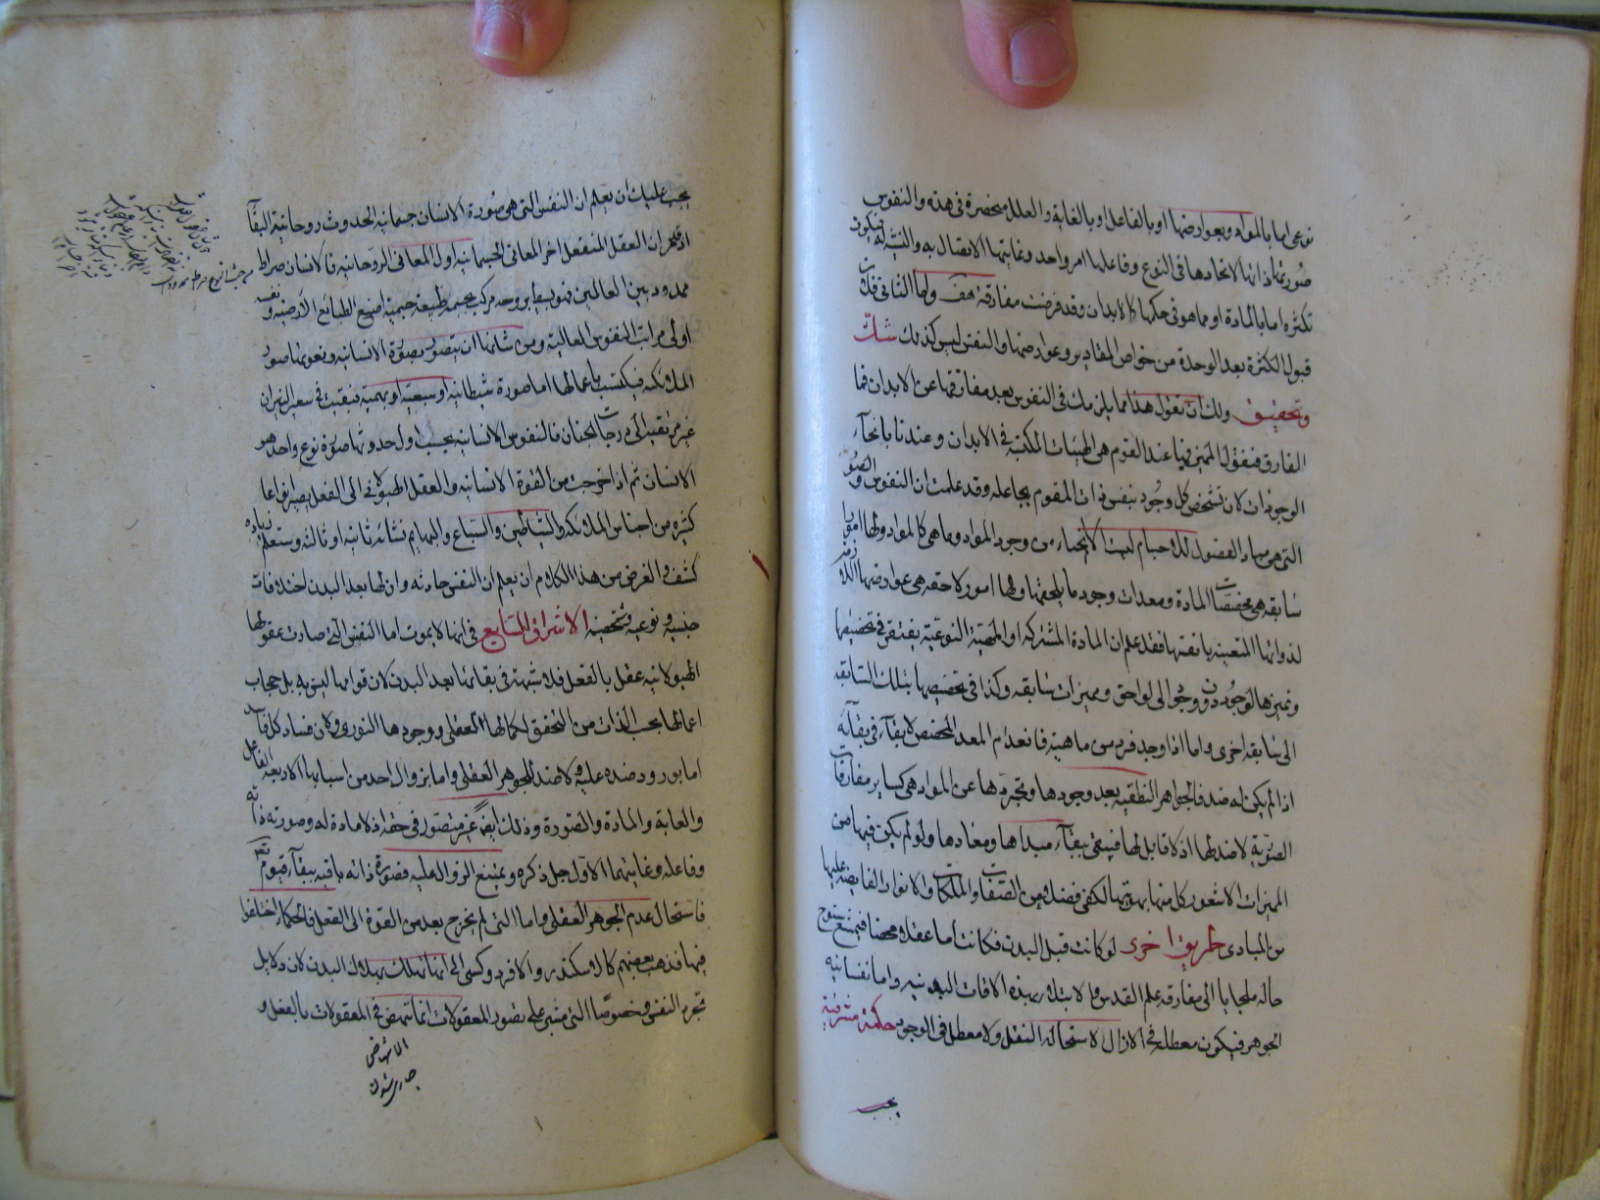 نوعی اما بالمواد وبعوارضها او بالفاعل او بالغایة والعلل منحصرة فی هذه والنفوس
صورتها ذاتها لاتحادها فی النوع وفاعلها امر واحد وغایتها الاتصال به والتشبه له فیکون
تکثره اما بالمادة او بما هو فی حکمها کالابدان وقد فرضت مفارقة هف ولها الثانی فلان
قبول الکثرة بعد الوحدة من خواص المقادیر وعوارضها والنفس لیس کذلک شک
وتحقیق ولک ان تقول هذا مما یلزمک فی النفوس بعد مفارقتها عن الابدان فما
الفارق فنقول الممیز فیها عند القوم هی الهیئات المکتسبة فی الابدان وعندنا بانحاء
الوجودات کان تشخص کل وجود بنفس ذات المقوم بجاعله وقد علمت ان النفوس والصور
التی هی مباد الفصول للاجسام لیست الا انحاء من وجود المواد وما هی کالمواد ولها امور
سابقة هی مخصصات المادة ومعدات وجود ما یلحقها ولها امور لاحقة هی عوارضها اللازمة
لذواتها المتعینة بانفسها فقد علم ان المادة المشترکة او المهیة النوعیة یفتقر فی تخصیصها
وتمیزها الوجودی دون وجها الی لواحق وممیزات سابقة وکذا فی تخصیصها بتلک السابقة
الی سابقة اخری واما اذا وجد فرد من ماهیة فانعدام المعد المخصص لا یقدح فی بقائه
اذا لم یکن له ضد فالجواهر النطقیة بعد وجودها وتجردها عن المواد هی کسایر مفارقات
الصوریة لا ضد لها اذ لا قابل لها فیبقی ببقاء مبداها ومعادها ولو لم یکن فیها من
الممیزات الا شعور کل منها بهویتها لکفی فضلا من الصفات والملکات والانوار الفایضة علیها
من المبادی طریق اخری لو کانت قبل البدن فکانت اما عقلا محضا فیمتنع سنوح
حالة ملجاة الی مفارقة عالم القدس والابتلاء بهذه الافات البدنیة واما نفسانیة
الجوهر فیکون معطلة فی الازال لاستحالة النقل ولا معطل فی الوجود حکمة مشرقیة
یجب
یجب علیک ان تعلم ان النفس التی هی صورة الانسان جسمانیة الحدوث روحانیة البقاء
اذ ظهر ان العقل المنفعل اخر المعانی الجسمانیة واول المعانی الروحانیة فالانسان صراط
ممدود بین العالمین فهو بسیط بروحه مرکب بجسمه طبیعة جسمیة اصفی الطبائع الارضیة ونفسه
اولی مراتب النفوس العالیة ومن شانها ان یتصور بصورة الانسانیة ونعوتها صور
الملائکة فیکتسب باعمالها اما صورة شیطانیة او سبعیة او بهیمیة فبقیت فی سعیر النیران
غیر مرتقیة الی درجات الجنان فالنفوس الانسانیة بحسب اول حدوثها صورة نوع واحد هو
الانسان ثم اذا خرجت من القوة الانسانیة والعقل الهیولانی الی الفعل یصیر انواعا
کثیرة من اجناس الملائکة والشیاطین والسباع والبهایم نشاة ثانیة او ثالثة وستعلم زیاده
کشف والغرض من هذا الکلام ان یعلم ان النفس حادثة وان لها بعد البدن اختلافات
جنسیة ونوعیة وشخصیة الاشراق السابع فی انها لا یموت اما النفس التی صارت عقولها
الهیولانیة عقل بالفعل فلا شبهة فی بقائها بعد البدن لان قوامها لیس به بل حجاب
اعمالها بحسب الذات من التحقق بکمالها العقلی ووجودها النوری ولان فساد کل فاسد
اما بورود ضده علیه ولا ضد للجوهر العقلی واما بزوال واحد من اسبابها الاربعة الفاعل
والغایة والمادة والصورة وذلک ایضا غیر متصور فی حقه اذ لا مادة له وصورته ذاته
وفاعله وغایتهما الاول جل ذکره ویمتنع الزوال علیه فصورة ذاته باقیة ببقاء قیومه
فاستحال عدم الجوهر العقلی واما التی لم یخرج بعد من القوة الی الفعل فالحکماء اختلفوا
فیها فذهب بعضهم کالاسکندر والافرودیسی الی انها تهلک بهلاک البدن لان دلایل
تجرد النفس وخصوصا التی مبنی علی تصور المعقولات انما تنهض فی المعقولات بالفعل و